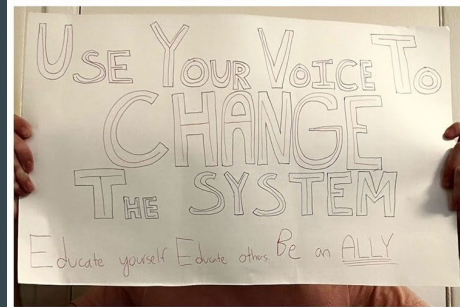 USE YOUR VOICE TO
CHANGE
THE SYSTEM
Educate yourself Educate others. Be an ALLY